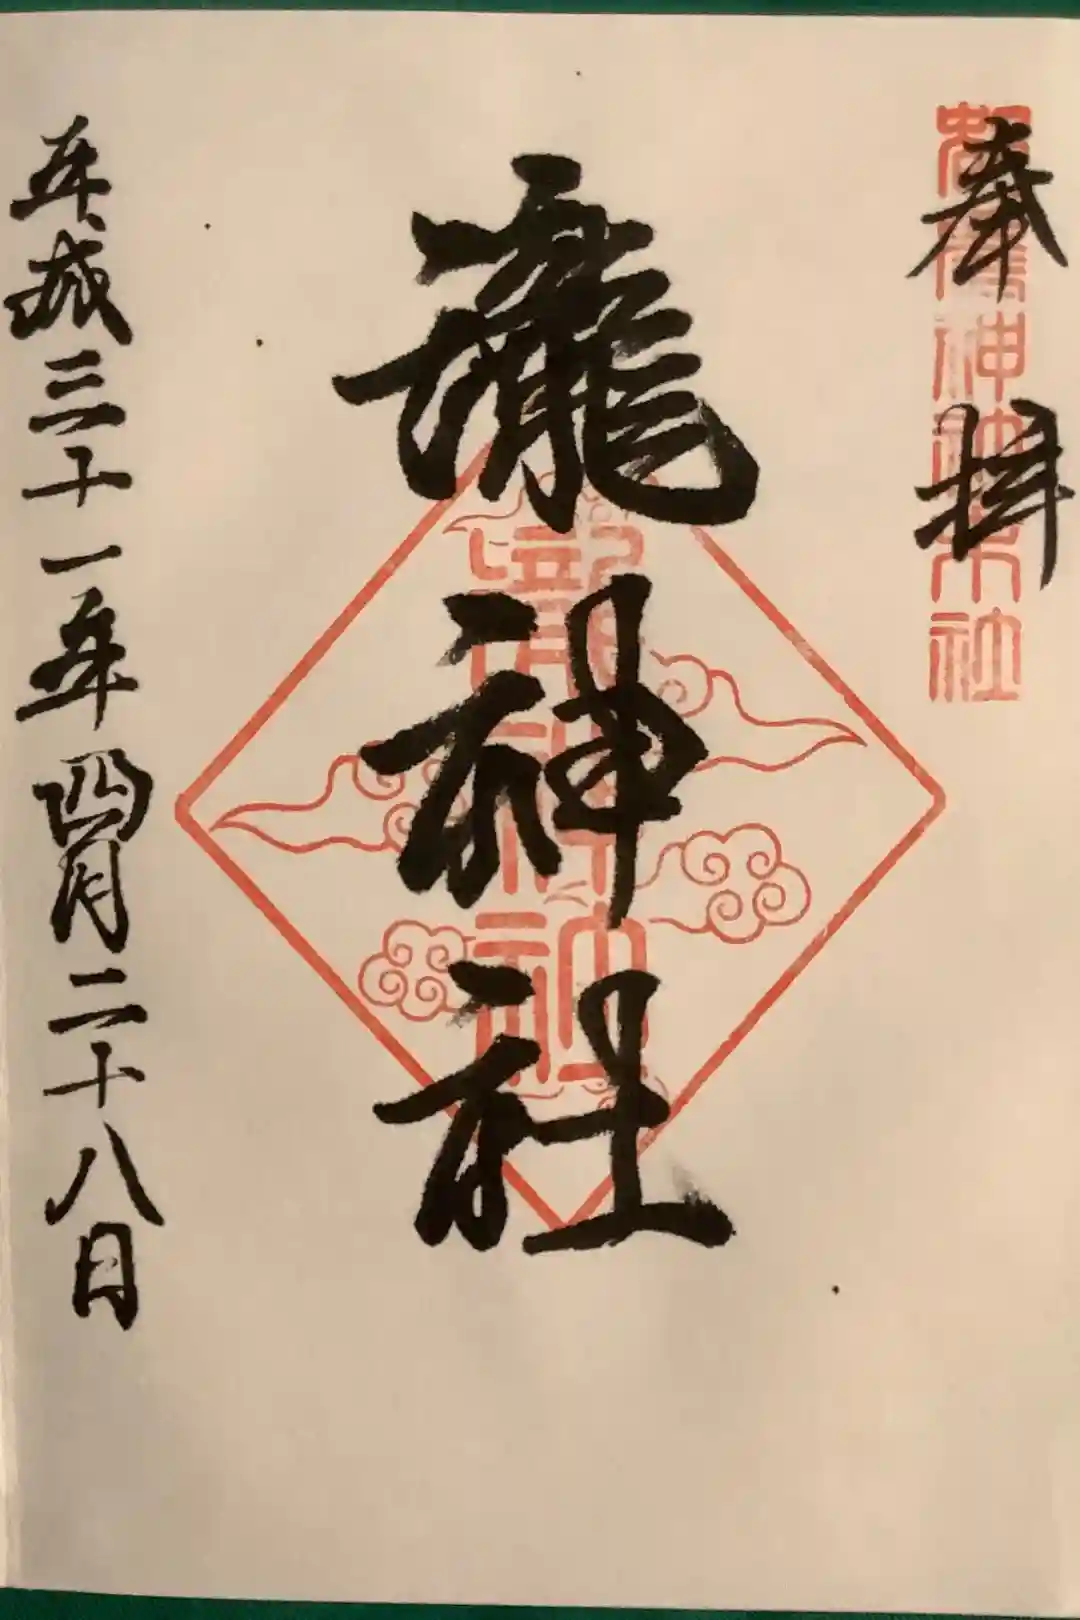 奉拝
神社末社
瀧神社
瀧神社
平成三十一年四月二十八日